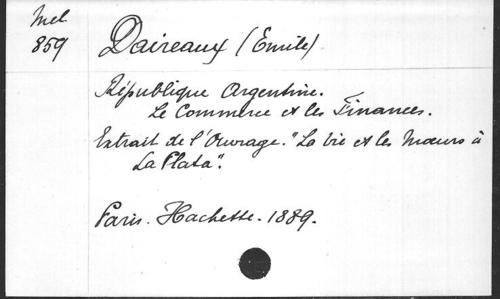 Mel
859
Daireaux (Emile)
République Argentine.
Le Commerce et les Finances.
Extrait de l'Ouvrage. "La vie et les Mœurs à
La Plata".
Paris. Hachette. 1889.